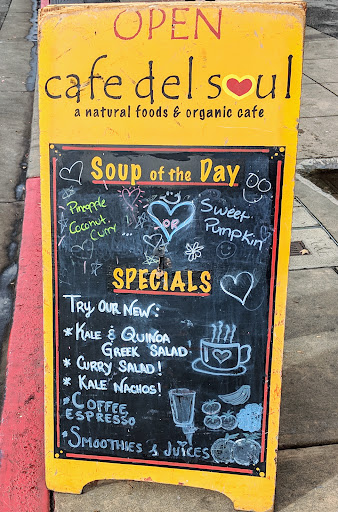 OPEN
cafe del soul
a natural foods & organic cafe
Soup of the Day
Pineapple
Coconut
Curry
OR
Sweet
Pumpkin
SPECIALS
TRY OUR NEW:
* KALE & QUINOA
GREEK SALAD!
* CURRY SALAD!
* KALE NACHOS!
* COFFEE
ESPRESSO
* SMOOTHIES & JUICES